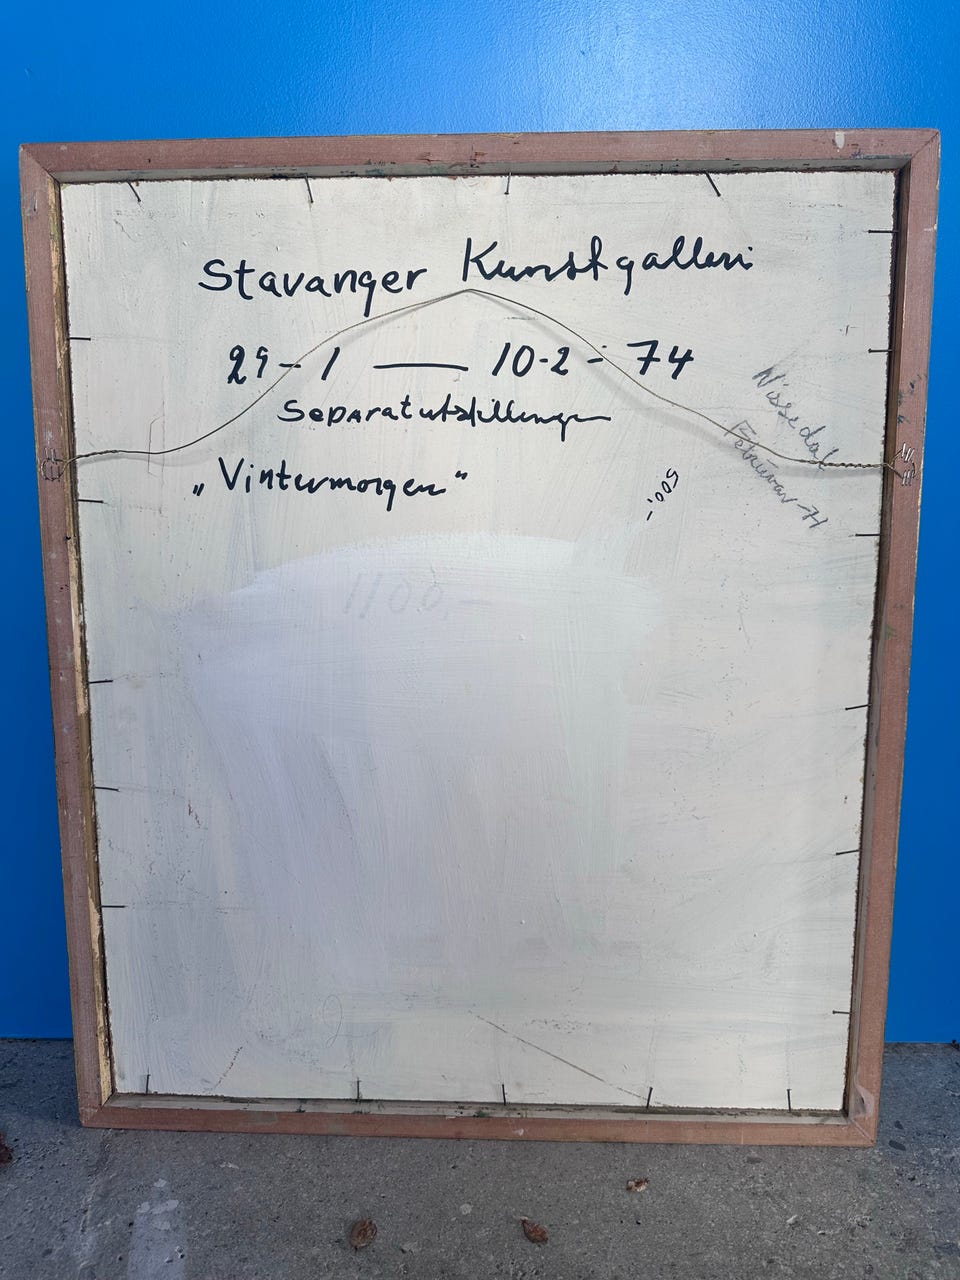 Stavanger Kunstgalleri
29-1 — 10-2-74
Separatutstillingen
„Vintermorgen“
Nissedal
Februar-71
500,-
1100,-